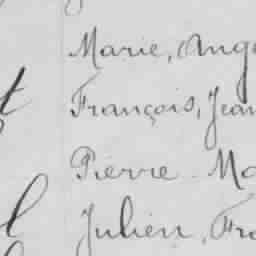 Marie, Ang
François, Jean
Pierre Ma
Julien, Fra